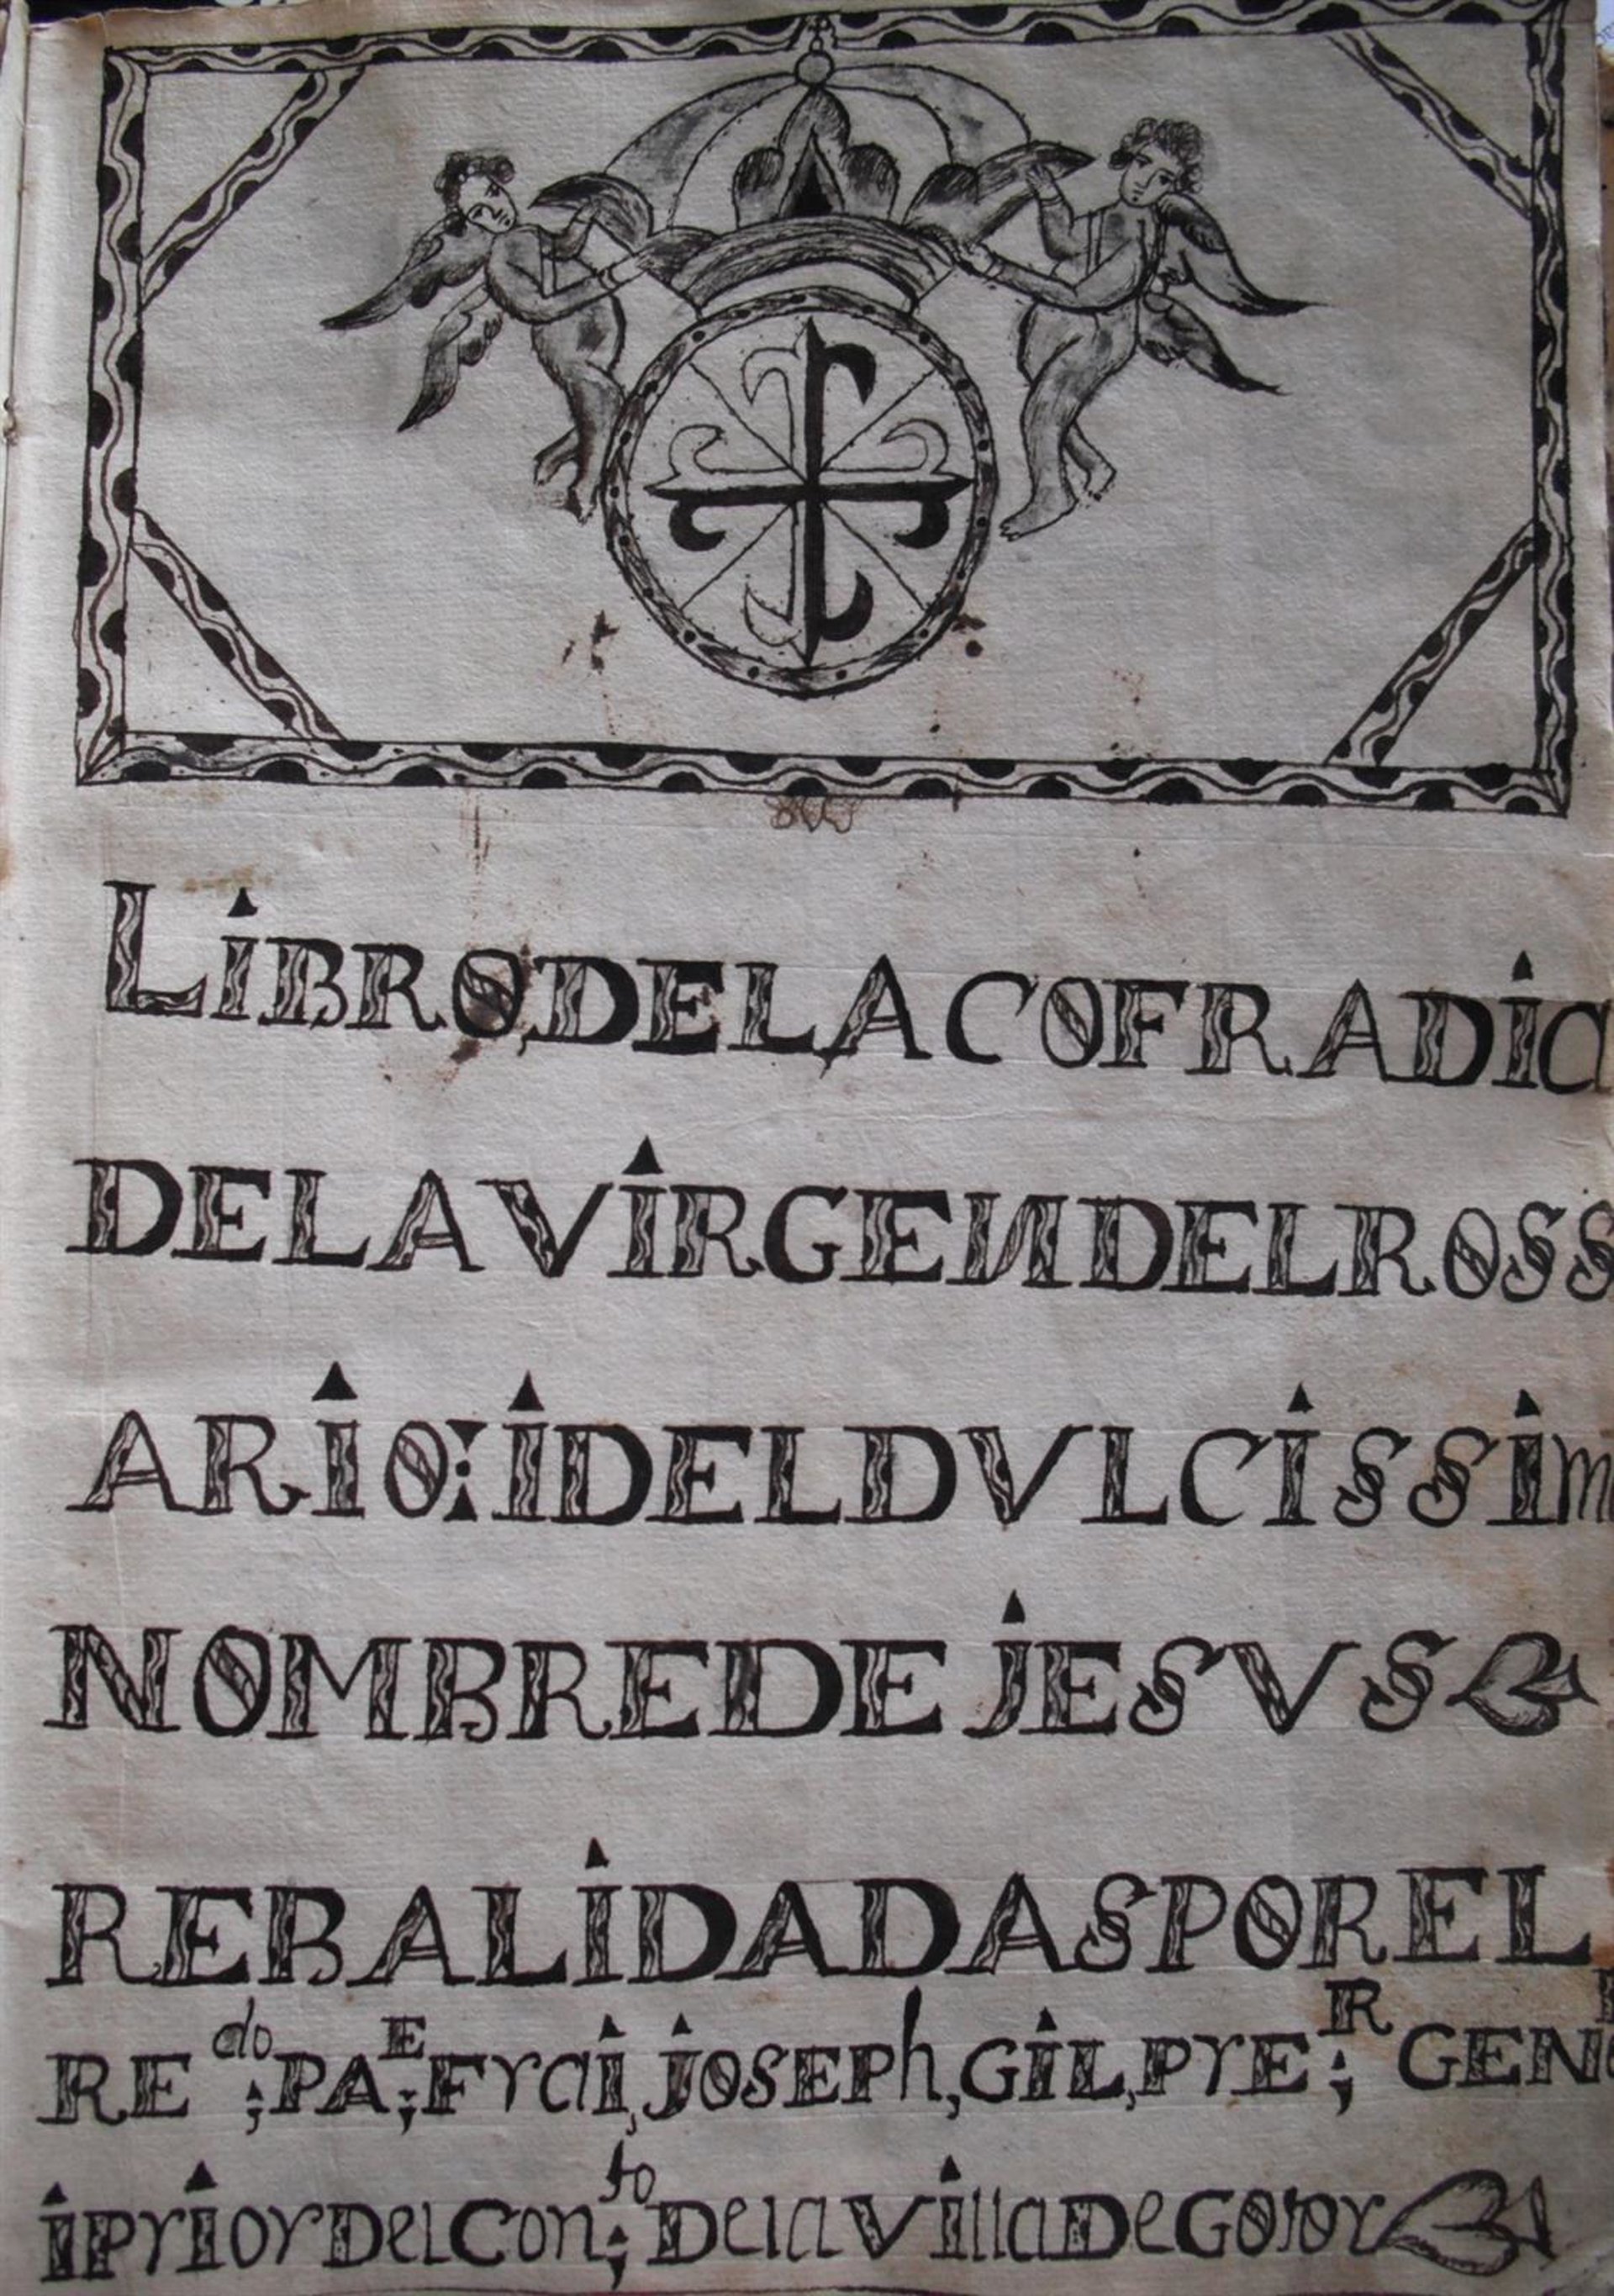 LiBRO DE LA COFRADiA
DE LA ViRGEN DEL ROSS
ARiO: i DEL DVLCiSSiM
NOMBRE DE jESVS
REBALiDADAS POR EL
RE do; PA E; Frai, jOSEPh, GiL, PrE R; GEN
i PriOr DEL Con to; De la Villa De GOtOr